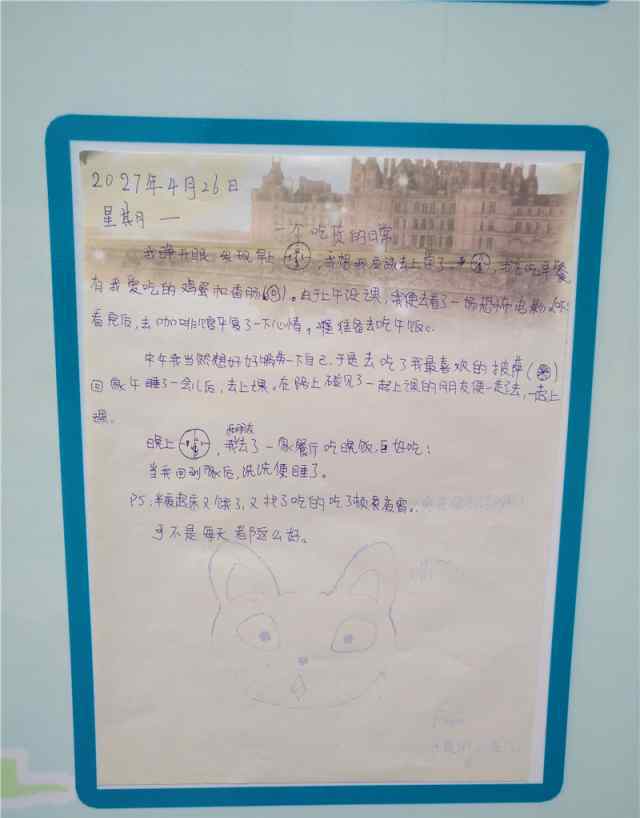 2027年4月26日
星期一
一个吃货的日常
我睁开眼,发现早上,我想我应该去上课了,我去吃早餐
有我爱吃的鸡蛋和香肠。由于上午没课,我便去看了一场恐怖电影,
看完后,去咖啡馆平复了一下心情,准备去吃午饭。
中午我当然想好好犒劳一下自己,于是去吃了我最喜欢的披萨()
回家午睡了一会儿后,去上课。在路上碰见了一起上课的朋友便一起去,一起上
课。
晚上,我去了一家餐厅吃晚饭,好吃!
当我回到家后,洗洗便睡了。
PS:半夜起床又饿了,又找了吃的吃了顿夜宵。
不是每天都这么好。